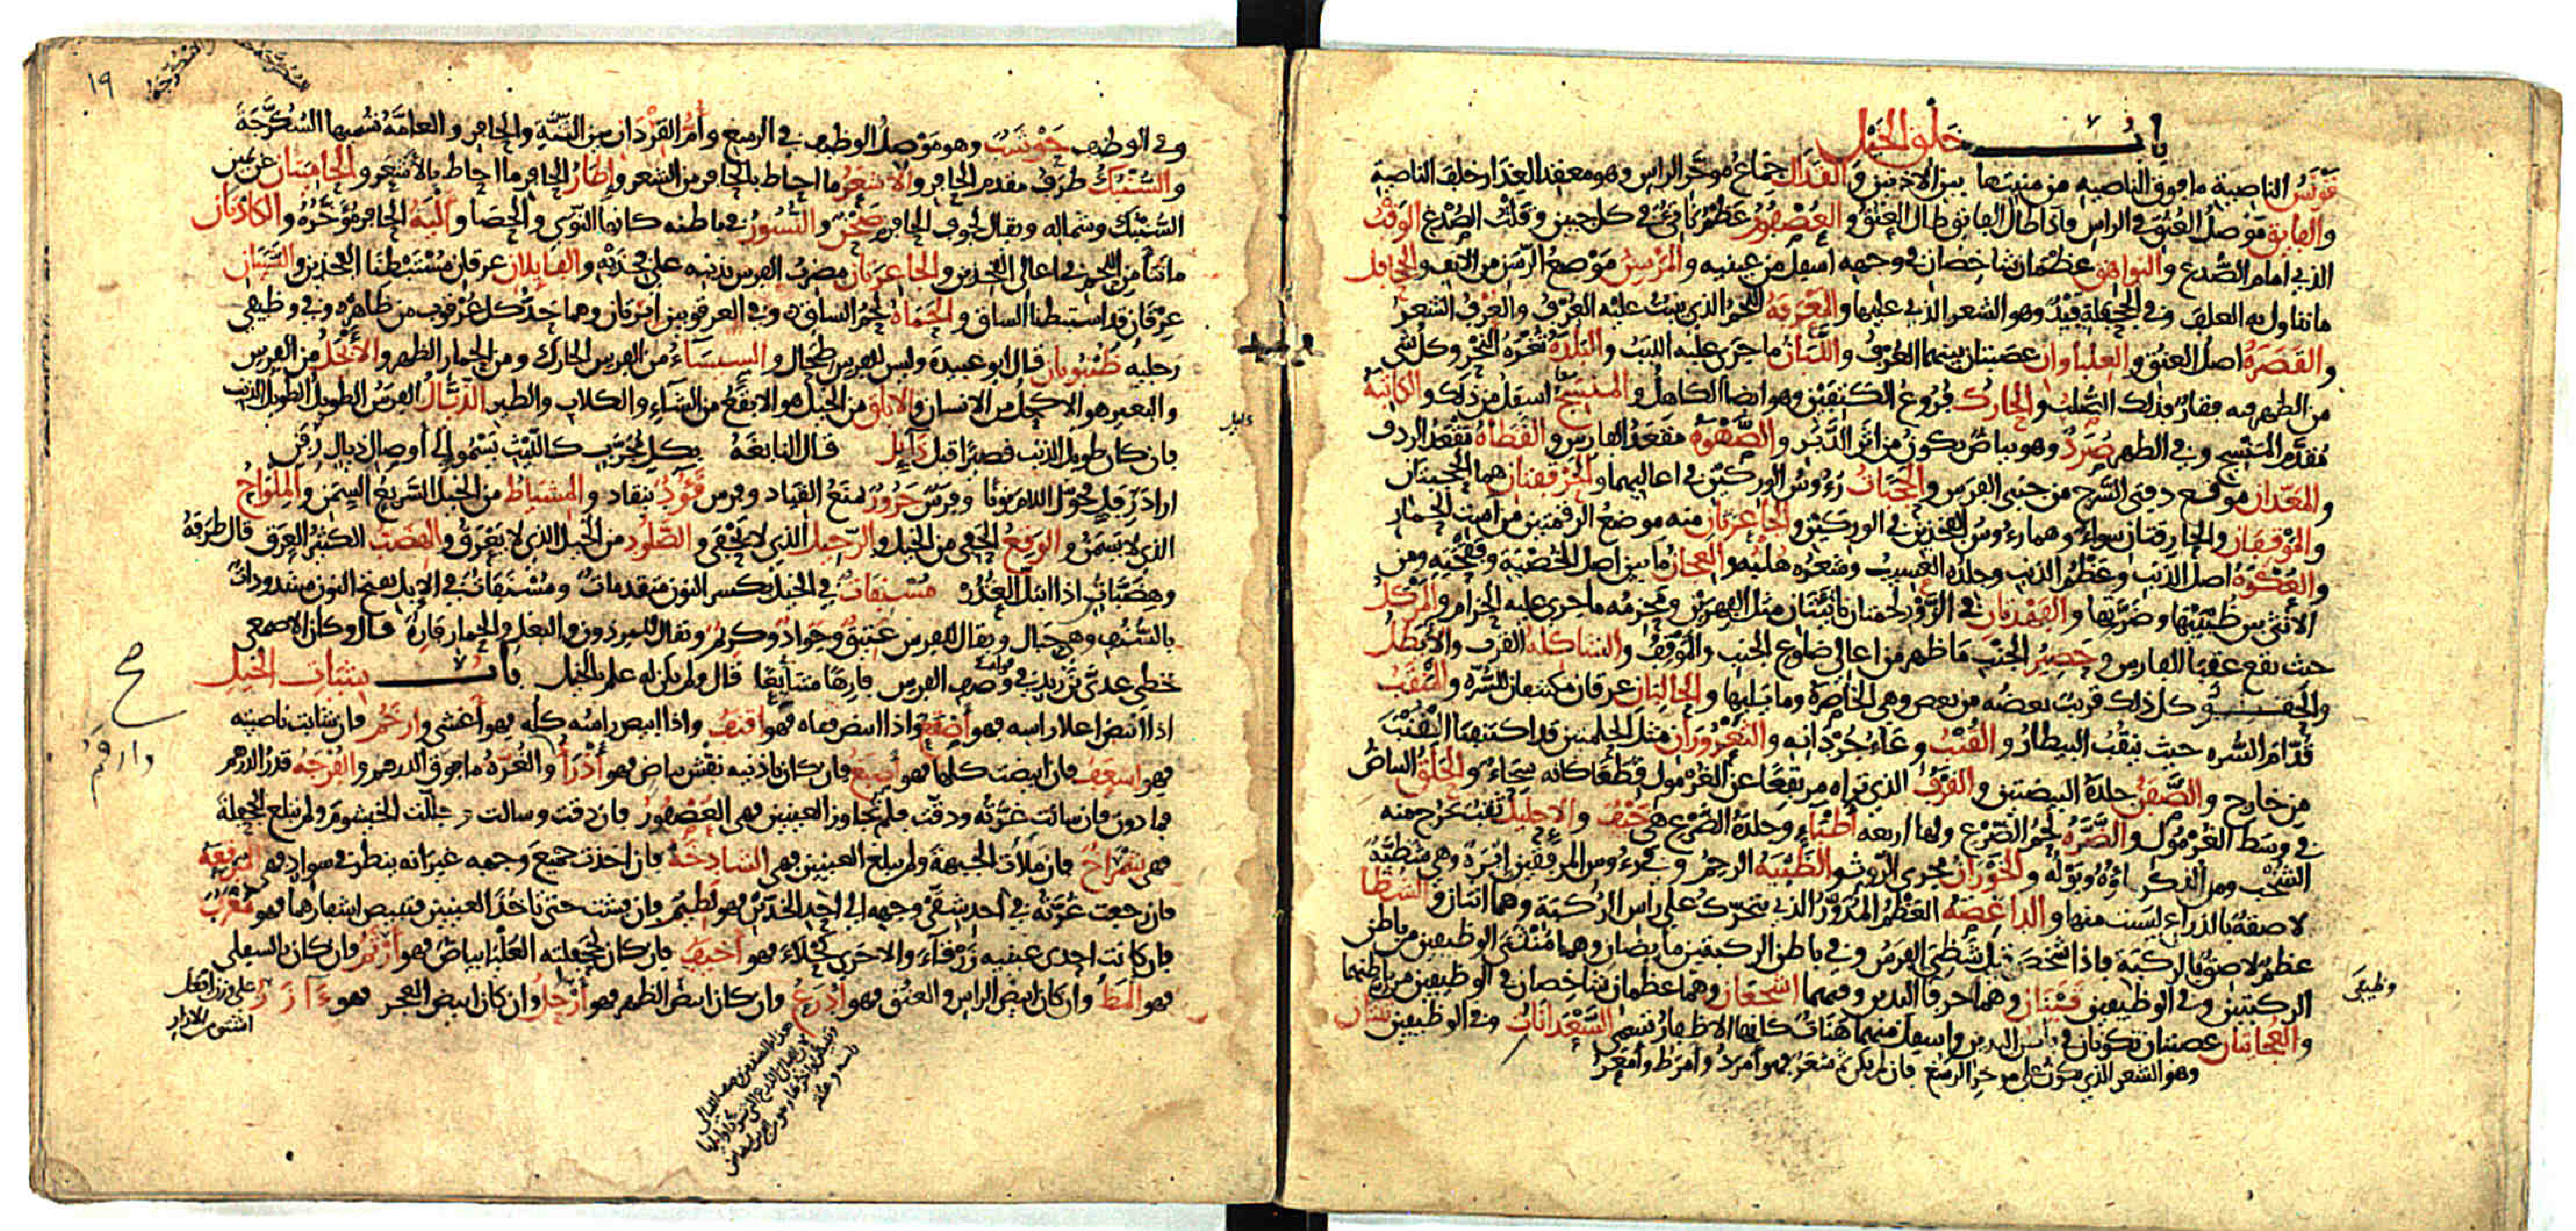 باب خلق الخيل
قونس الناصية ما فوق الناصيه من منبتها بين الاذنين والقذال جماع مؤخر الراس وهو معقد العذار خلف الناصية
والفايق موصل العنق في الراس فاذا طال الفايق طال العنق والعصفور عظم ناتئ في كل جبين وقلت الصدغ الوقب
الذي امام الصدع والنواهق عظمان شاخصان في وجهه اسفل من عينيه والمرسن موضع الرسن من الانف والجحافل
ما تناول به العلف وفي الجحفلة فيد وهو الشعر الذي عليها والمعرفة اللحم الذي ينبت عليه العرف والعرف الشعر
والقصرة اصل العنق والعلباوان عصبتان بينهما العرف واللبان ما جرى عليه اللبب والبلدة ثغرة النحر وكل شي
من الظهر فيه فقار فذلك الصلب والحارك فروع الكتفين وهو ايضا الكاهل والمنسج اسفل من ذلك والكاثبة
مقدم المنسج وفي الظهر صرد وهو بياض يكون من اثر الدبر والصهوة مقعد الفارس والقطاة مقعد الردف
والمعدان موقع دفتي السرج من جنبي الفرس والحجبات رءوس الوركين في اعاليهما والحرقفتان هما الحجبتان
والموقفان والحارقتان سواء وهما رءوس الفخذين في الوركين والجاعرتان منه موضع الرقمتين من است الحمار
والعكوة اصل الذنب وعظم الذنب وجلده العسيب وشعره هلبه والعجان ما بين اصل الخصية وفقحته ومن
الانثى بين ظبيتها وضرتها والفهدتان في الزور لحمتان ناتئتان مثل الفهرين ومحزمه ما جرى عليه الحزام والمركل
حيث تقع عقبا الفارس وحصير الجنب ما ظهر من اعالي ضلوع الجنب والموقف والشاكلة القرب والايطل
والحقو كل ذلك قريب بعضه من بعض وهي الخاصرة وما يليها والحالبان عرقان مكتنفان للسرة والمنقب
قدام السره حيث ينقب البيطار والقنب وعاء جردانه والثغروران مثل الحلمتين قد اكتنفتا القنب
من خارج والصفن جلدة البيضتين والقرف الذي تراه مرتفعا عن الغرمول قطعا كانه سحاء والحلق البياض
في وسط الغرمول والضرة لحم الضرع ولها اربعه اطباء وجلدة الضرع هي خيف والاحليل ثقب تخرج منه
الشخب ومن الذكر ماؤه وبوله والخوران مجرى الروث والظبية الرحم وفي رءوس المرفقين ابرة وهي شظية
لاصقة بالذراع ليست منها والداغصة العظم المدور الذي يتحرك على راس الركبة وهما اثنان والشظا
عظم لاصق بالركبة فاذا شخص قيل شظي الفرس وفي باطن الركبتين مابضان وهما منثنى الوظيفين من باطن
الركبتين وفي الوظيفين قينان وهما حرفا اليدين وفيهما اشجعان وهما عظمان شاخصان في الوظيفين من باطنهما
والعجايتان عصبتان تكونان في باطن اليدين واسفل منهما هنات كانها الاظفار تسمى السعدانات وفي الوظيفين ثنتان
وهو الشعر الذي يكون على مؤخر الرسغ فان لم يكن ثم شعر فهو امرد وامرط وامعر
وظيفي
١٩
وفي الوظيف حوشب وهو موصل الوظيف في الرسغ وام القردان بين الثنة والحافر والعامة تسميها السكرجة
والسنبك طرف مقدم الحافر والاشعر ما احاط بالحافر من الشعر واطار الحافر ما احاط بالاشعر والحاميتان عن يمين
السنبك وشماله ويقال لجوف الحافر صحن والنسور في باطنه كانها النوى والحصا والية الحافر مؤخره والكاذتان
ما نتا من اللحم في اعالي الفخذين والجاعرتان مضرب الفرس بذنبه على فخذيه والفايلان عرقان مستبطنا الفخذين والنسيان
عرقان قد استبطنا الساق والحماة لحم الساق وفي العرقوبين ابرتان وهما حد كل عرقوب من ظاهره وفي وظيفي
رجليه ظنبوبان قال ابو عبيدة وليس لفرس طحال والسيساء من الفرس الحارك ومن الحمار الظهر والابجل من الفرس
والبعير هو الاكحل من الانسان والابلق من الخيل هو الابقع من الشاء والكلاب والطير الذيال الفرس الطويل الطويل الذنب
فان كان طويل الذنب قصيرا قيل ذايل قال النابغة بكل مجرب كالليث يسمو الى اوصال ذيال رفن
اراد رفل فحول اللام نونا وفرس جرور يمنع القياد وفرس قؤود ينقاد والمشياط من الخيل السريع السمن والملواح
الذي لا يسمن والوقع الحفي من الخيل والرجيل الذي لا يحفى والصلود من الخيل الذي لا يعرق والهضب الكثير العرق قال طرفة
وهضبات اذا ابتل العذر مسنفات في الخيل بكسر النون متقدمات ومسنفات في الابل بفتح النون مشدودات
بالسنف وهي حبال ويقال للفرس عتيق وجواد وكريم ويقال للبرذون والبغل والحمار فاره قال وكان الاصمعي
خطى عدي بن زيد في وصف الفرس فارها متتابعا قال ولم يكن له علم بالخيل باب شيات الخيل
اذا ابيض اعلا راسه فهو اصقع واذا ابيض قفاه فهو اقنف واذا ابيض راسه كله فهو اغشى وارخم فان شابت ناصيته
فهو اسعف فان ابيضت كلها فهو اصبغ فان كان باذنيه نقش بياض فهو اذرا والغرة ما فوق الدرهم والقرحة قدر الدرهم
فما دون فان سالت غرته ودقت فلم تجاوز العينين فهي العصفور فان دقت وسالت وجللت الخيشوم ولم تبلغ الجحفلة
فهي شمراخ فان ملات الجبهة ولم تبلغ العينين فهي الشادخة فان اخذت جميع وجهه غير انه ينظر في سواد فهي المبرقعة
فان رجعت غرته في احد شقي وجهه الى احد الخدين فهو لطيم فان فشت حتى تاخذ العينين فتبيض اشفارهما فهو مغرب
فان كانت احدى عينيه زرقاء والاخرى كحلاء فهو اخيف فان كان بجحفلته العليا بياض فهو ارثم فان كان بالسفلى
فهو المظ وان كان ابيض الراس والعنق فهو ادرع وان كان ابيض الظهر فهو ارحل وان كان ابيض العجز فهو ءازر
على وزن افعل